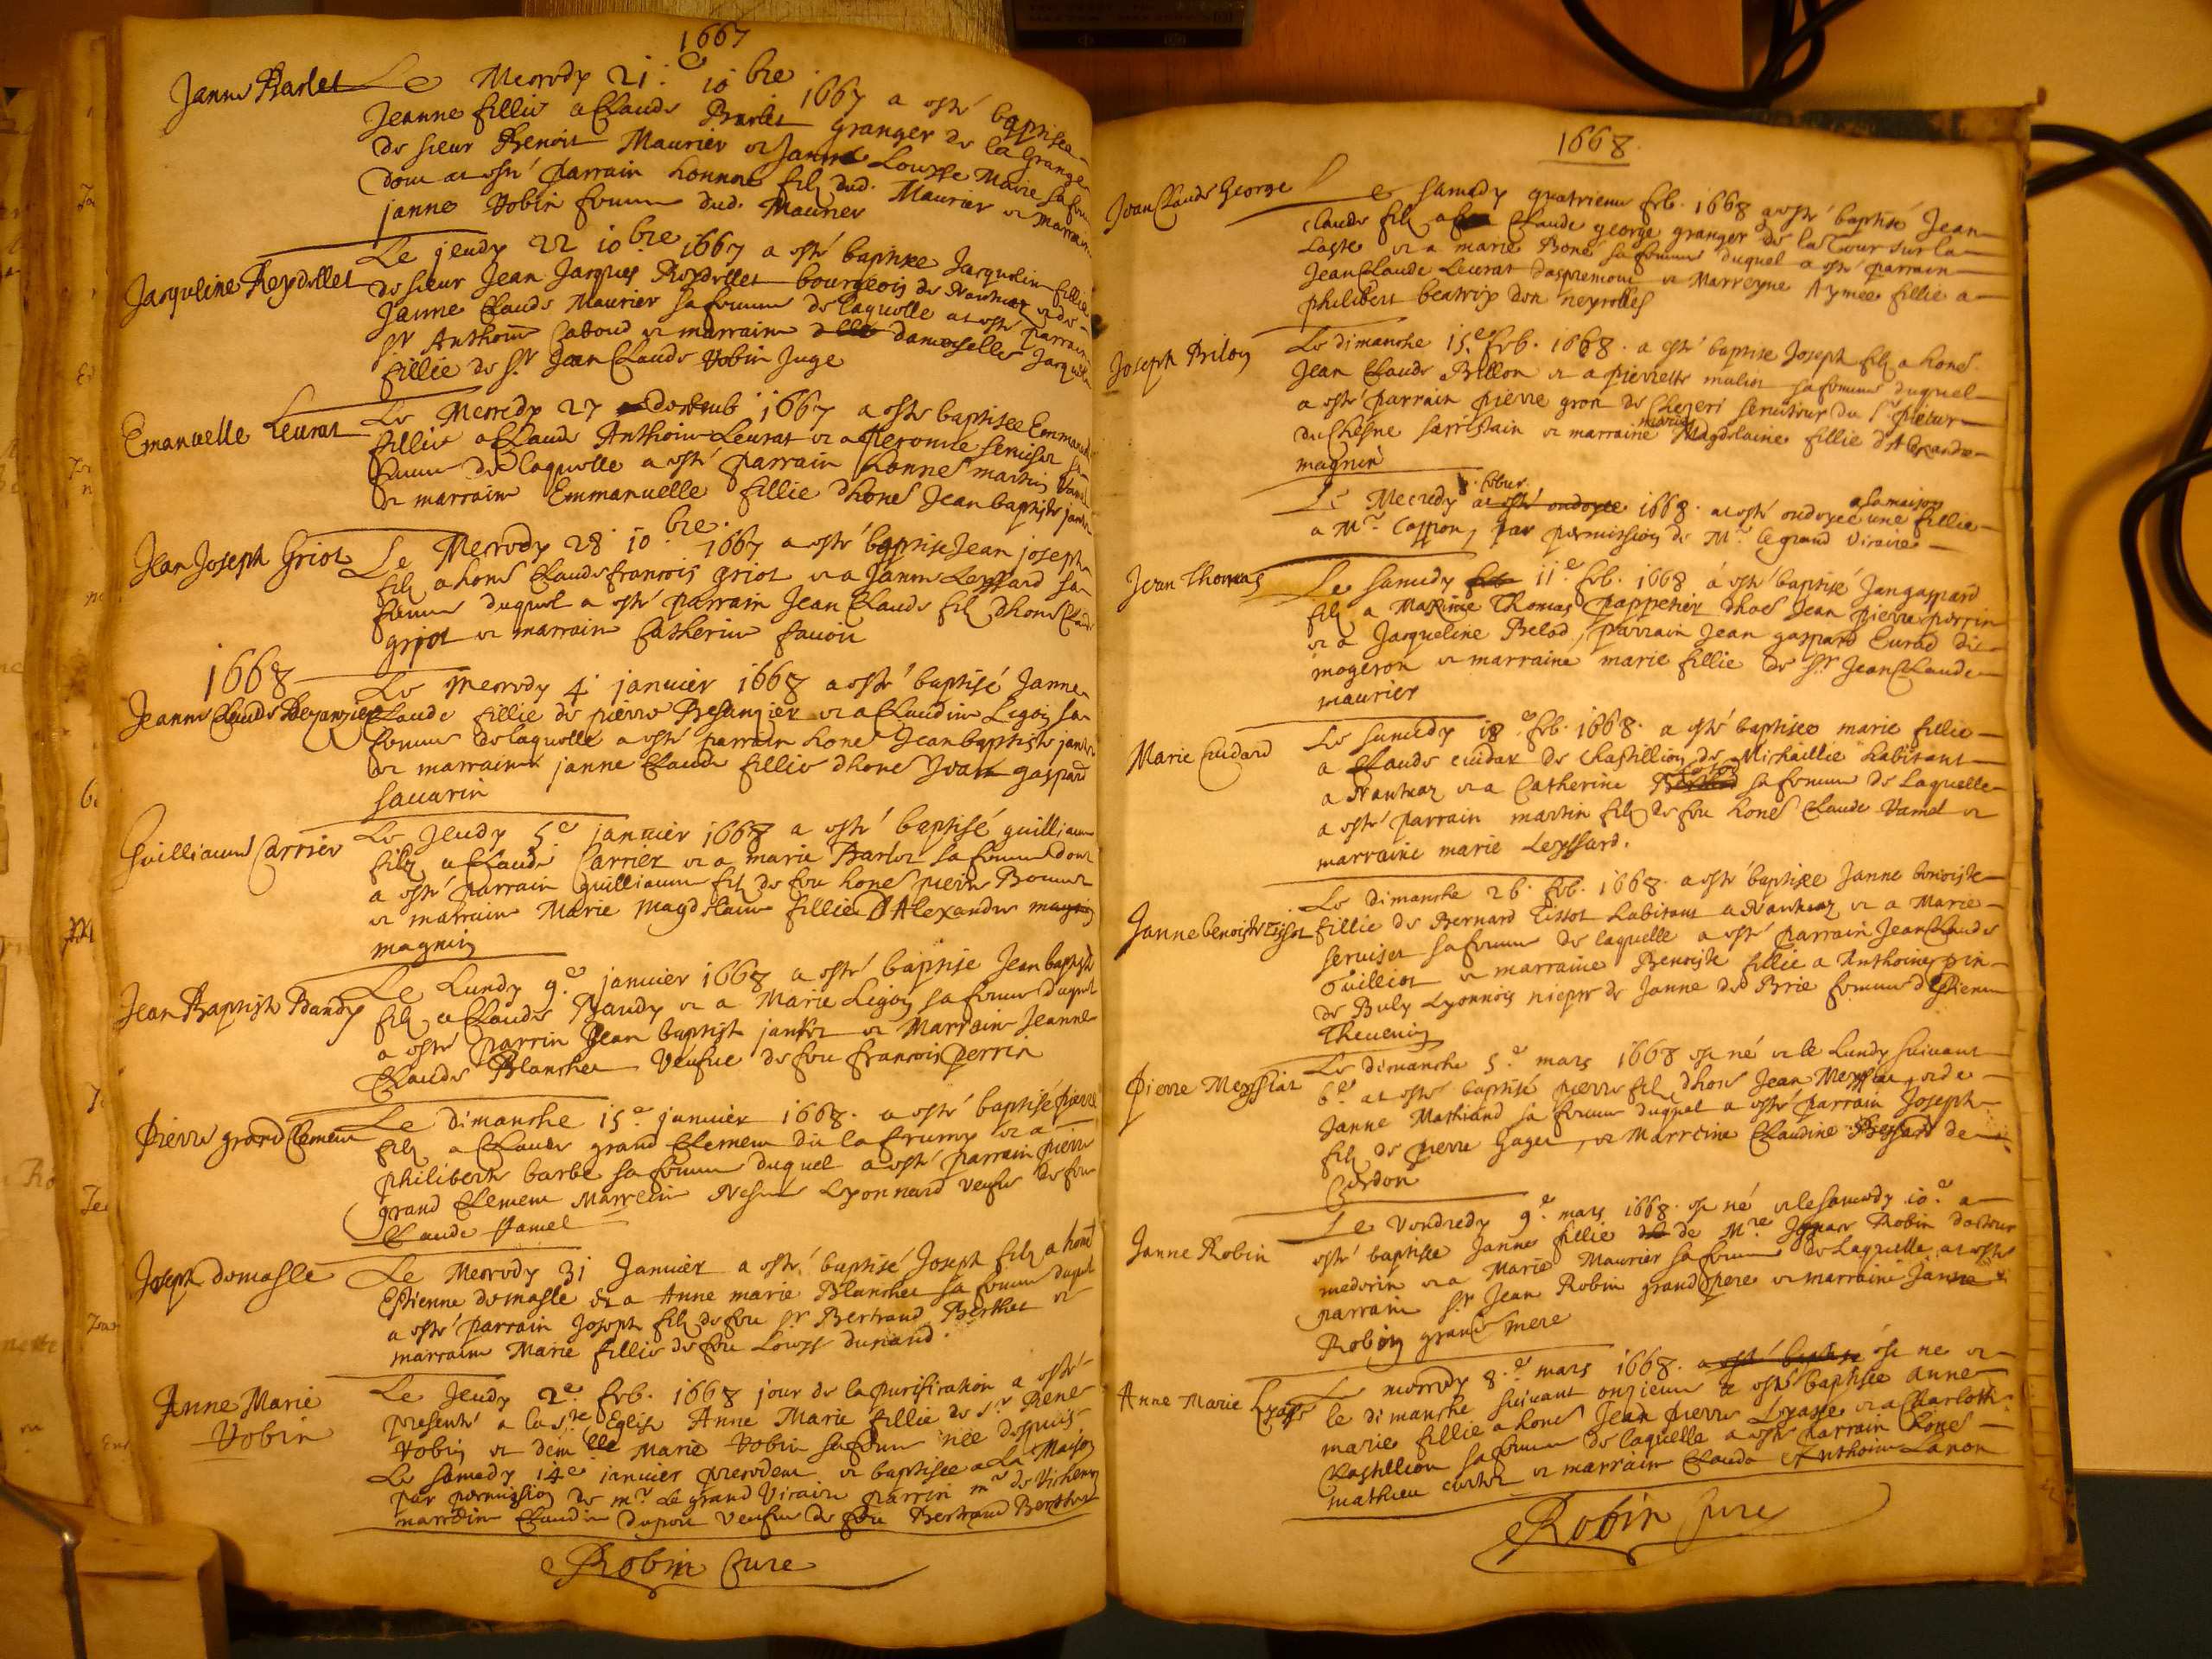 1667
Janne Barlet Le Mecredy 21.e 10bre 1667 a esté baptisée
Jeanne fillie a Claude Barlet granger de la grange
de sieur Benoit Maurier et Janne Louyse Marie sa fem
dont at esté parrain honnore filz dud. Maurier et marrain
janne Vobin femme dud. Maurier
Le jeudy 22 10bre 1667 a esté baptisee Jacqueline fillie
Jacqueline Reydellet de sieur Jean Jacques Reydellet bourgeois de Nantuaz et de
Janne Claude Maurier sa femme de laquelle at esté parrain
sr Anthoine Caboud et marraine damoyselle Jacque
fillie de Sr Jean Claude Vobin Juge
Emanuelle Leurat Le Mecredy 27 decemb 1667 a esté baptisee Emmanu
fillie a Claude Anthoine Leurat et a Peronne seruiset sa
femme de laquelle a esté parrain honnes martin Vamel
et marraine Emmanuelle fillie dhones Jean baptiste jantet
Jean Joseph Griot Le Mecredy 28 10bre. 1667 a esté baptisé Jean joseph
filz a hones Claude francois griot et a Janne Leyssard sa
femme duquel a esté parrain Jean Claude filz dhones Claude
griot et marraine Catherine fauoir
1668
Le Mecredy 4 januier 1668 a esté baptisé Janne
Jeanne Claude Bezanzier Claude fillie de pierre Besanzier et a Claudine Ligoz sa
femme de laquelle a esté parrain hones Jean baptiste jantet
et marraine janne Claude fillie dhones Jean gaspard
sauarin
Guilliaume Carrier Le Jeudy 5e januier 1668 a esté baptisé guilliaume
filz a Claude Carrier et a marie Barlet sa femme dont
a esté parrain guilliaume filz de feu hones pierre
et marraine Marie Magdelaine fillie d'Alexandre
magnin
Jean Baptiste Bandy Le Lundy 9e januier 1668 a esté baptisé Jean baptiste
filz a Claude Bandy et a Marie Ligoz sa femme duquel
a esté parrin Jean baptiste jantet et Marraine Jeanne
Claude Blanchet Vefue de feu francois perrin
Pierre grand Clement Le dimanche 15e januier 1668. a esté baptisé pierre
filz a Claude grand Clement dit la frumy et a
philiberte barbe sa femme duquel a esté parrain pierre
grand Clement Marreine Lyonnard vefue de feu
Claude Vamel
Joseph demasle Le Mecredy 31 Januier a esté baptisé Joseph filz a honet
Estienne demasle et a Anne marie Blanchet sa femme duquel
a esté parrain Joseph filz de feu sr Bertrand Berthet et
marraine Marie fillie de feu Louys dunand.
Anne Marie Le Jeudy 2e feb. 1668 jour de la purification a esté
Vobin presenté a la Ste Eglise Anne Marie fillie de sr Rene
Vobin et demlle Marie Vobin sa femme née despuis
Le samedy 14e januier precedent et baptisee a La Maison
par permission de mr Le grand Viraire parrin mr de Vichemy
marreine Claudine dupont vefue de feu Bertrand Berthet
Robin Cure
1668.
Jean Claude George Le samedy quatrieme feb. 1668 a esté baptisé Jean
claude filz a Claude george granger de la Tour sur la
et a marie Boné sa femme duquel a esté parrain
Jean Claude Leurat daspremont et Marreyne Aymee fillie a
philibert beatrix don neyrolles
Joseph Brilon Le dimanche 15.e feb. 1668. a esté baptise Joseph filz a hones
Jean Claude Billon et a pierrette muliot sa femme duquel
a esté parrain pierre gron de Chezeri seruiteur du Sr prieur
duchesne sacristain et marraine marie Magdelaine fillie d'Alexandre
magnin
Le Mecredy 1668. at esté ondoyée a la maison une fillie
a Mr Coppon, par permission de Mr le grand Viraire
Jean Thomas Le samedy 11e. feb. 1668 a esté baptisé Jan gaspard
filz a Maxime Thomas pappetier dhoes Jean pierre perrin
et a Jacqueline Belod, parrain Jean gaspard Eurad dit
mogeron et marraine marie fillie de Sr Jean Claude
maurier
Marie Cuidard Le samedy 18e. feb. 1668. a esté baptisée marie fillie
a Claude cuidar de Chastillion de Michaillie habitant
a Nantuaz et a Catherine sa femme de Laquelle
a esté parrain martin filz de feu hones Claude Vamel et
marraine marie Leyssard.
Le dimanche 26. feb. 1668. a esté baptisee Janne benoiste
Janne benoiste Tissot fillie de Bernard Tissot habitant a Nantuaz et a Marie
seruiset sa femme de laquelle a esté parrain Jean Claude
Guilliot et marraine Benoiste fillie a Anthoine pin
de Buly Lyonnois niepce de Janne de Brie femme d'Estienne
Theuenin
Pierre Meyssiat Le dimanche 5e mars 1668 est né et le Lundy suiuant
6e at esté baptisé pierre filz dhones Jean Meyssiat et de
Janne Mathiand sa femme duquel a esté parrain Joseph
filz de pierre Gaget, et Marreine Claudine de
Cerdon
Janne Robin Le Vendredy 9e. mars 1668. est né et le samedy 10e a
esté baptisee Janne fillie de Mre Robin docteur
medecin et a Marie Maurier sa femme de Laquelle at esté
parrain Sr Jean Robin grand pere et marraine Janne
Robin grand mere
Anne Marie Lyasse Le mecredy 8.e mars 1668. est ne et
le dimanche suiuant onzieme a esté baptisée anne
marie fillie a hones Jean pierre Lyasse et a Charlotte
Chastillion sa femme de laquelle a esté parrain hones
mathieu et marraine Claude Anthoine Lanon
Robin Cure